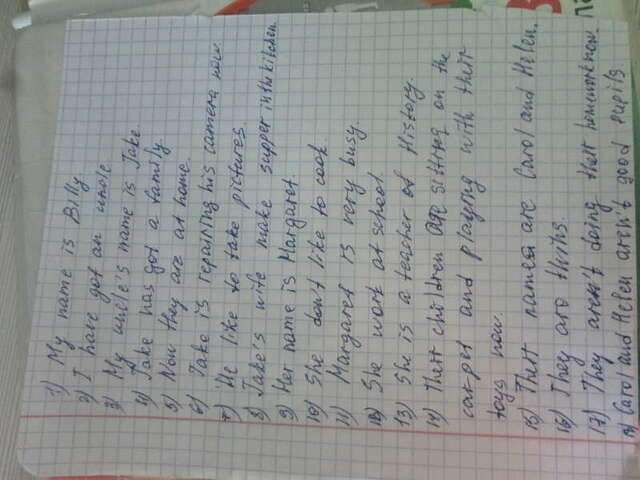 1) My name is Billy
2) I have got an uncle
3) My uncle's name is Jake.
4) Jake has got a family.
5) Now they are at home.
6) Jake is repairing his camera now
7) He like to take pictures.
8) Jake's wife make supper in the kitchen
9) Her name is Margaret.
10) She don't like to cook.
11) Margaret is very busy.
12) She work at school.
13) She is a teacher of History.
14) Their children are sitting on the
carpet and playing with their
toys now.
15) Their names are Carol and Helen.
16) They are twins.
17) They aren't doing their homework now.
18) Carol and Helen aren't good pupils.